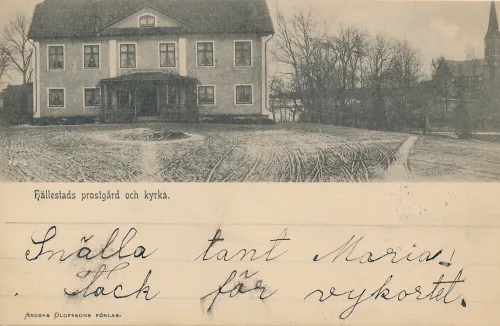 Hällestads prostgård och kyrka.
Snälla tant Maria!
Tack för vykortet.
Anders Olofsons förlag.